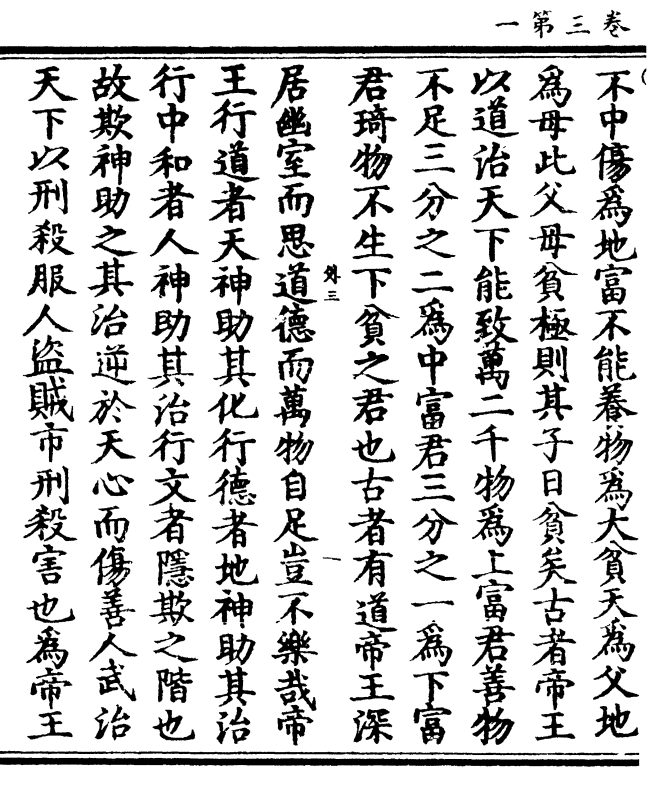 卷三第一
不中傷爲地富不能養物爲大貧天爲父地
爲母此父母貧極則其子日貧矣古者帝王
以道治天下能致萬二千物爲上富君善物
不足三分之二爲中富君三分之一爲下富
君琦物不生下貧之君也古者有道帝王深
外三
居幽室而思道德而萬物自足豈不樂哉帝
王行道者天神助其化行德者地神助其治
行中和者人神助其治行文者隱欺之階也
故欺神助之其治逆於天心而傷善人武治
天下以刑殺服人盜賊市刑殺害也爲帝王